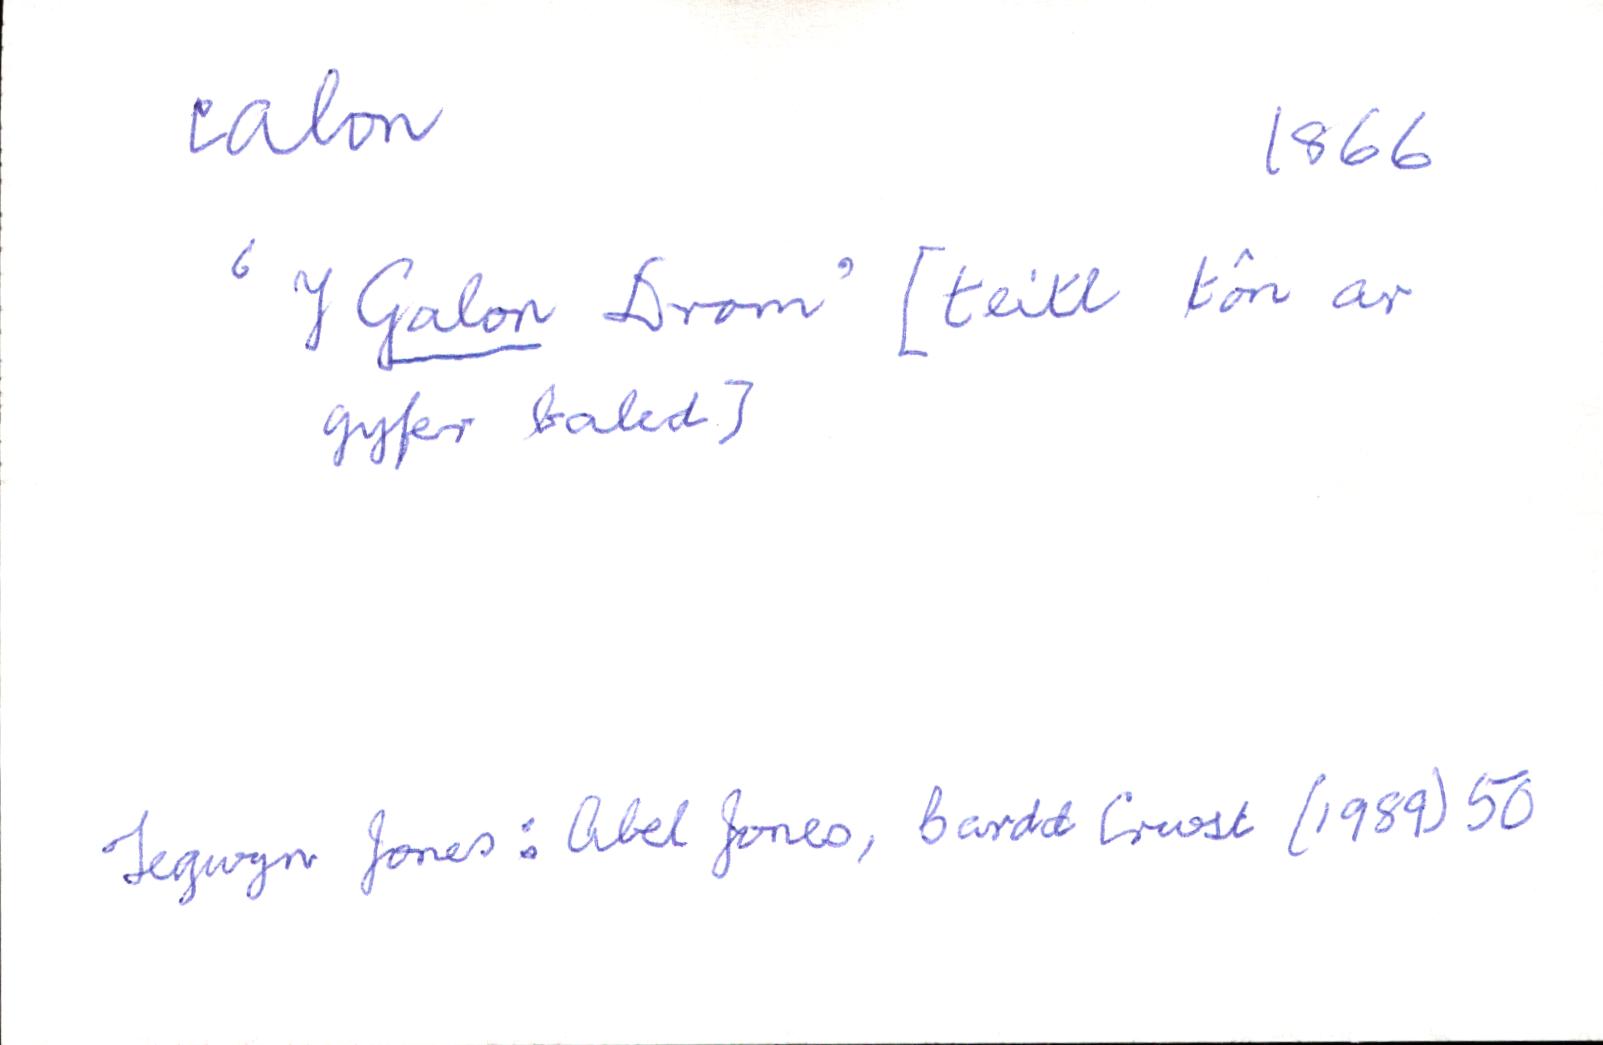 calon 1866
‘Y Galon Drom’ [teitl tôn ar
gyfer baled]
Tegwyn Jones: Abel Jones, Bardd Crwst (1989) 50